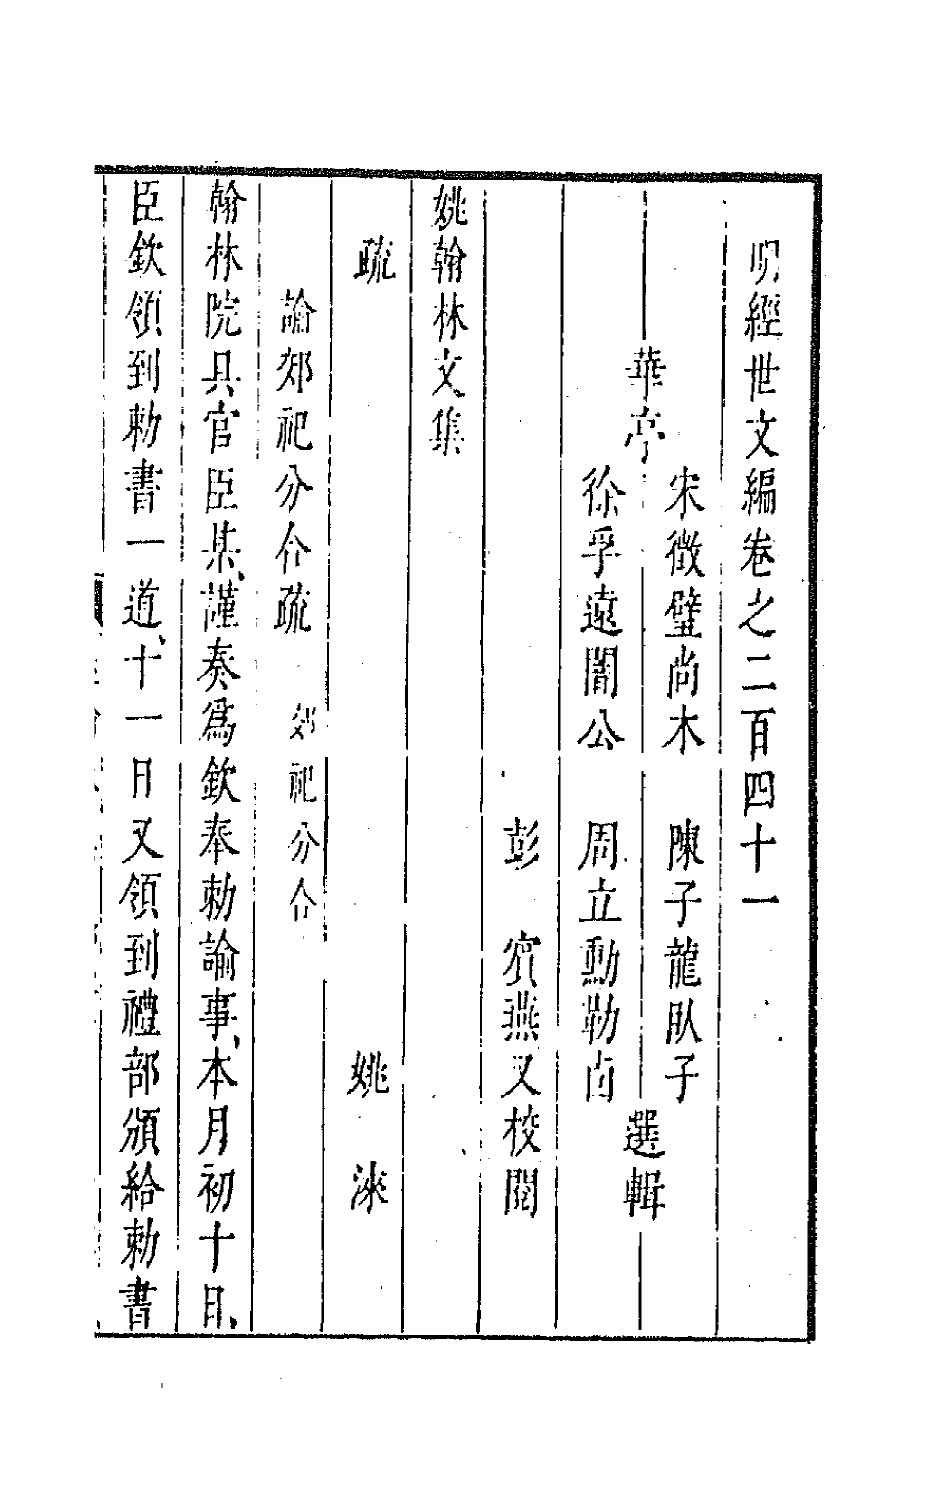 明經世文編卷之二百四十一
宋徵璧尚木　陳子龍臥子
華亭　選輯
徐孚遠闇公　周立勳勒卣
彭　賓燕又校閱
姚翰林文集
疏　姚淶
論郊祀分合疏　郊祀分合
翰林院具官臣某、謹奏爲欽奉勅諭事、本月初十日、
臣欽領到勅書一道、十一日又領到禮部頒給勅書